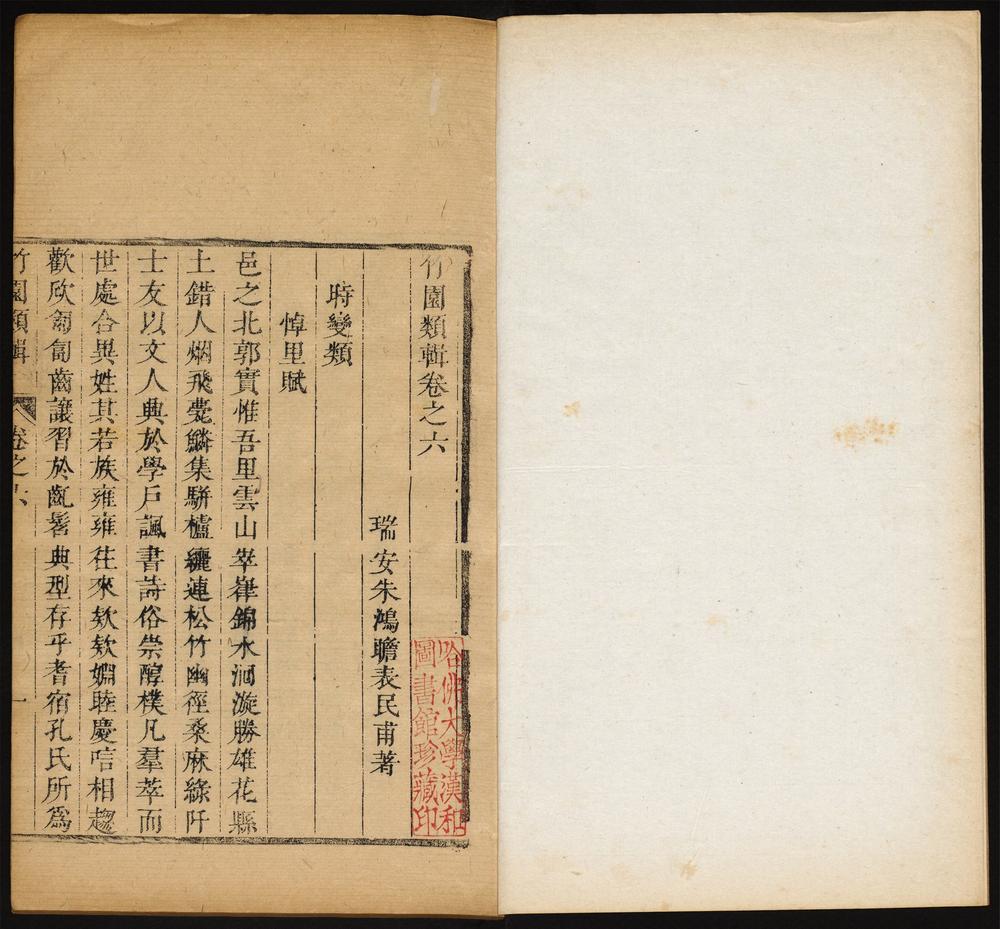 竹園類輯卷之六
瑞安朱鴻瞻表民甫著
時變類
悼里賦
邑之北郭實惟吾里雲山崒嵂錦水洄漩勝雄花縣
土錯人烟飛甍鱗集駢櫨纚連松竹幽徑桑麻綠阡
士友以文人典於學戶諷書詩俗崇醇樸凡羣萃而
世處合異姓其若族雍雍徃來欸欸婣睦慶唁相趨
歡欣匔匔齒讓習於齓髫典型存乎耆宿孔氏所爲
竹園類輯
卷之六
一
哈佛大學漢和
圖書館珍藏印